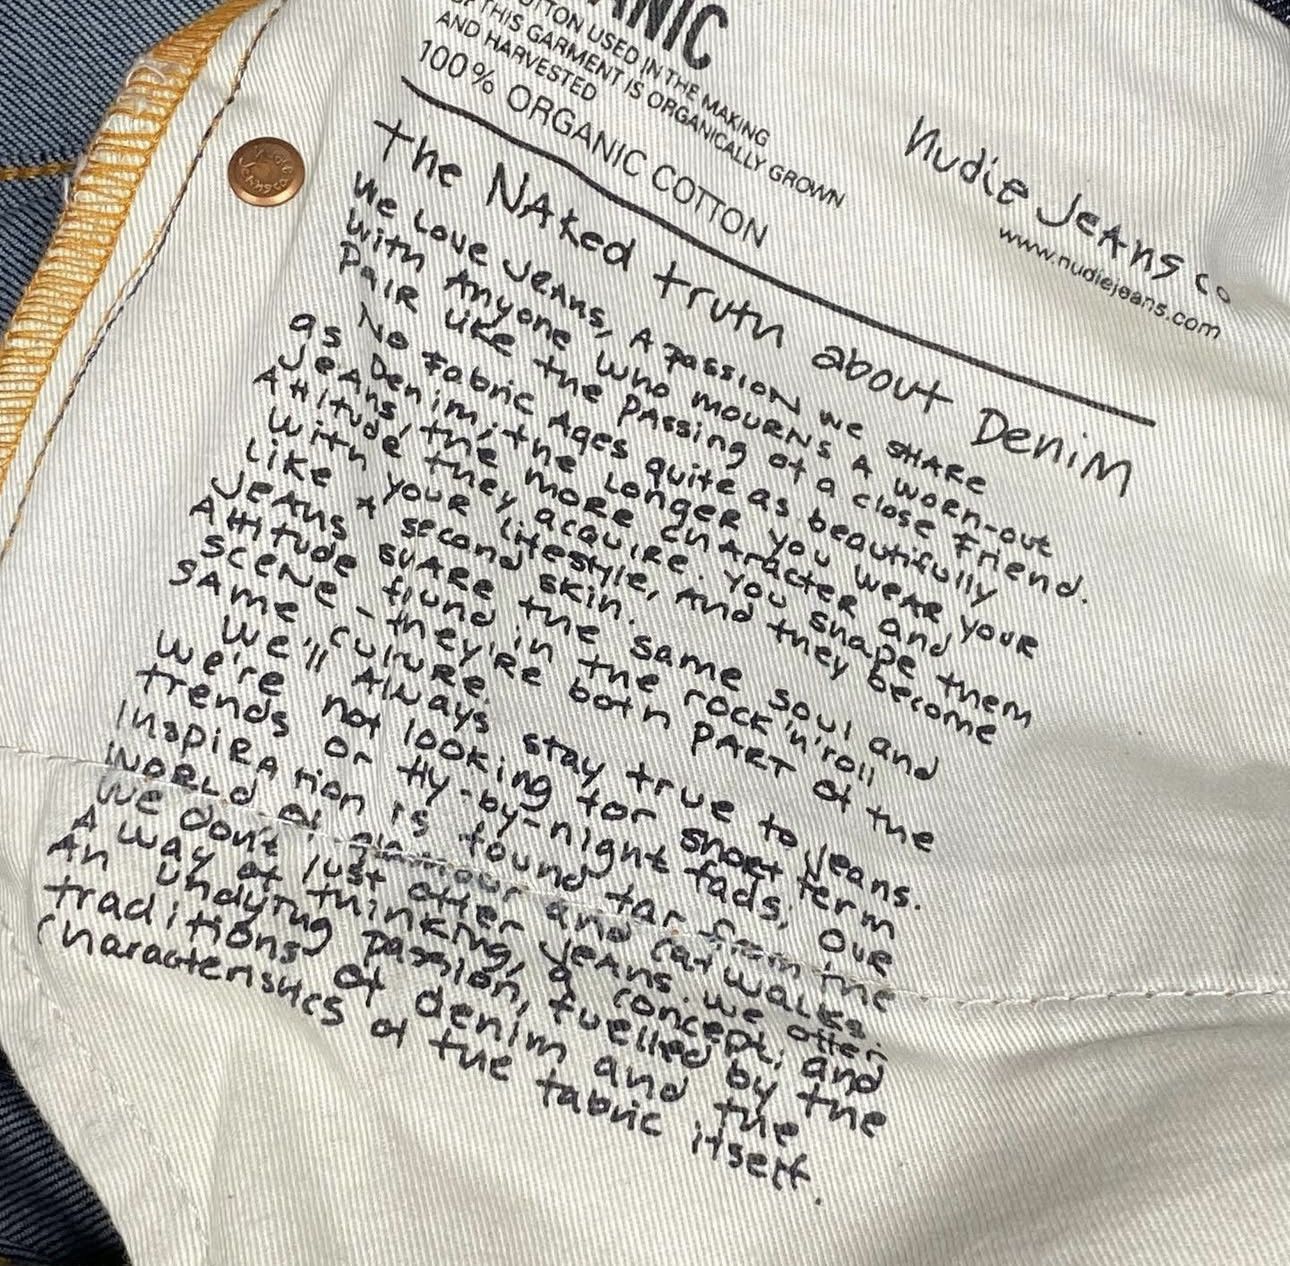 COTTON USED IN THE MAKING
OF THIS GARMENT IS ORGANICALLY GROWN
AND HARVESTED
100% ORGANIC COTTON
Nudie Jeans co
www.nudiejeans.com
The NAked truth about DeniM
We Love JeAns, A passion we SHARe
with Anyone who mourns A worn-out
PAIR like the PAssing of a close friend.
No fabric Ages quite as beautifully
as Denim; the longer you weAR your
JeAns, the more chAracter and
Attitude they acquire. You shape them
with your lifestyle, And they become
like A second skin.
Jeans sHARe the same soul and
Attitude found in the rock'n'roll
scene - they're both PART of the
sAme culture.
We'll Always stay true to jeans.
we're not looking for short term
trends or fly-by-night fads; our
InspiRAtion is found far from the
WORLD of glamour and catwalks.
We don't just offer jeAns. we offer
A way of thinking, a concept; and
An undying passion, fuelled by the
traditions of denim and the
characteristics of the fabric itself.